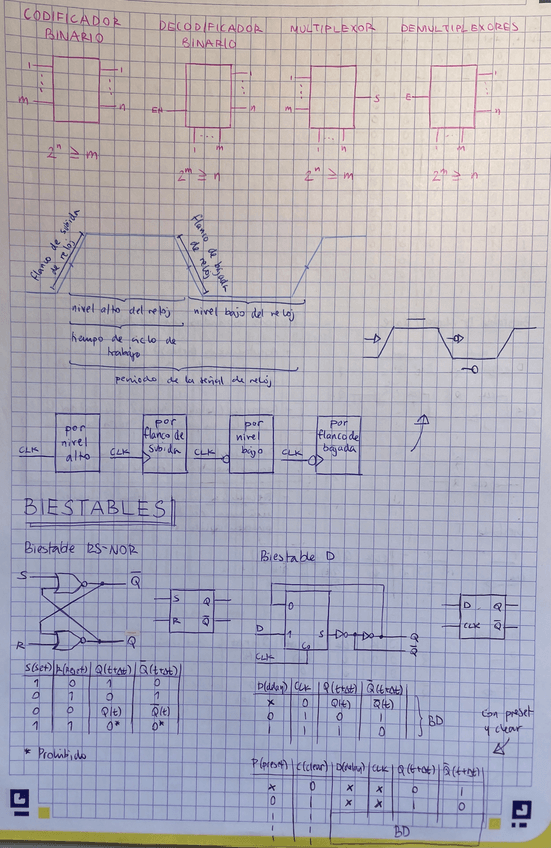 CODIFICADOR BINARIO
DECODIFICADOR BINARIO
MULTIPLEXOR
DEMULTIPLEXORES
1 1
m n
2ⁿ ≥ m
EN 1 n
1 ... m
2ᵐ ≥ n
1 m S
1 n
2ⁿ ≥ m
E 1 n
1 m
2ᵐ ≥ n
flanco de subida de reloj
flanco de bajada de reloj
nivel alto del reloj
nivel bajo del reloj
tiempo de ciclo de trabajo
periodo de la señal de reloj
CLK por nivel alto
CLK por flanco de subida
CLK por nivel bajo
CLK por flanco de bajada
BIESTABLES
Biestable RS-NOR
S Q̅
R Q
S Q
R Q̅
S(set) R(reset) Q(t+Δt) Q̅(t+Δt)
1 0 1 0
0 1 0 1
0 0 Q(t) Q̅(t)
1 1 0* 0*
* Prohibido
Biestable D
0
D 1 S Q
Q̅
CLK
D Q
CLK Q̅
D(delay) CLK Q(t+Δt) Q̅(t+Δt)
x 0 Q(t) Q̅(t)
0 1 0 1
1 1 1 0
BD
con preset y clear
P(preset) C(clear) D(delay) CLK Q(t+Δt) Q̅(t+Δt)
x 0 x x 0 1
0 1 x x 1 0
1 1 BD